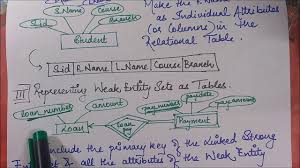 S.Name Course Make the
Sid Branch as Individual Attributes
Student (or Columns) in the
Relational Table.
Sid F.Name L.Name Course Branch
III Representing Weak Entity Sets as Tables.
loan_number amount pay_number pay_date
Loan loan pay Payment
Include the primary key of the Linked Strong
all the attributes of the Weak Entity